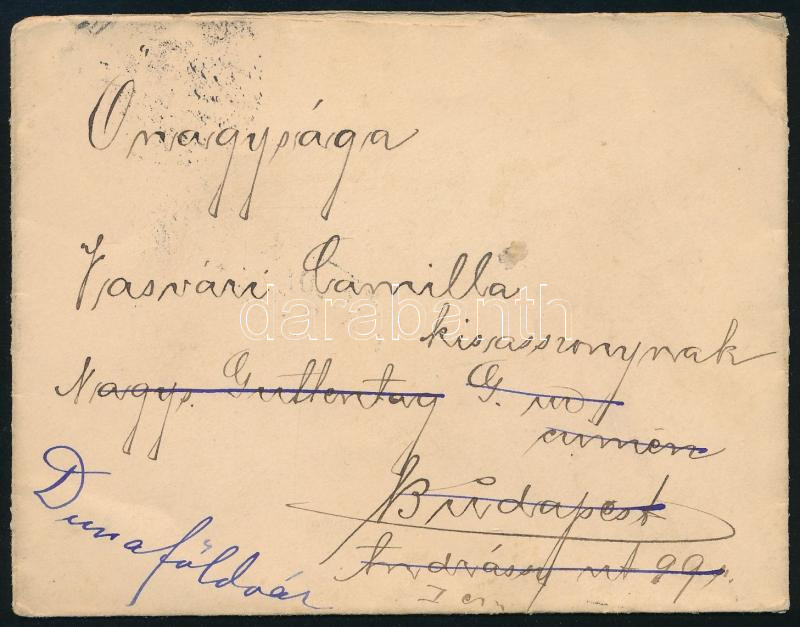 Őnagysága
Vasvári Camilla
darabanth
kisasszonynak
Nagys. Guttentag G. úr
címén
Budapest
Dunaföldvár
Andrássy út 99.
I em